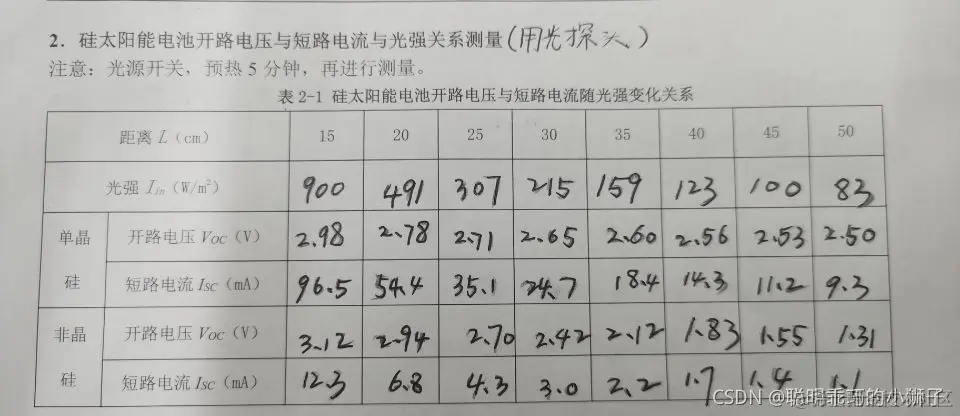 2. 硅太阳能电池开路电压与短路电流与光强关系测量(用光探头)
注意：光源开关，预热5分钟，再进行测量。
表 2-1 硅太阳能电池开路电压与短路电流随光强变化关系
距离 L（cm） 15 20 25 30 35 40 45 50
光强 Iin（W/m²） 900 491 307 215 159 123 100 83
单晶硅 开路电压 VOC（V） 2.98 2.78 2.71 2.65 2.60 2.56 2.53 2.50
短路电流 ISC（mA） 96.5 54.4 35.1 24.7 18.4 14.3 11.2 9.3
非晶硅 开路电压 VOC（V） 3.12 2.94 2.70 2.42 2.12 1.83 1.55 1.31
短路电流 ISC（mA） 12.3 6.8 4.3 3.0 2.2 1.7 1.4 1.1
CSDN @聪明乖巧的小狮子